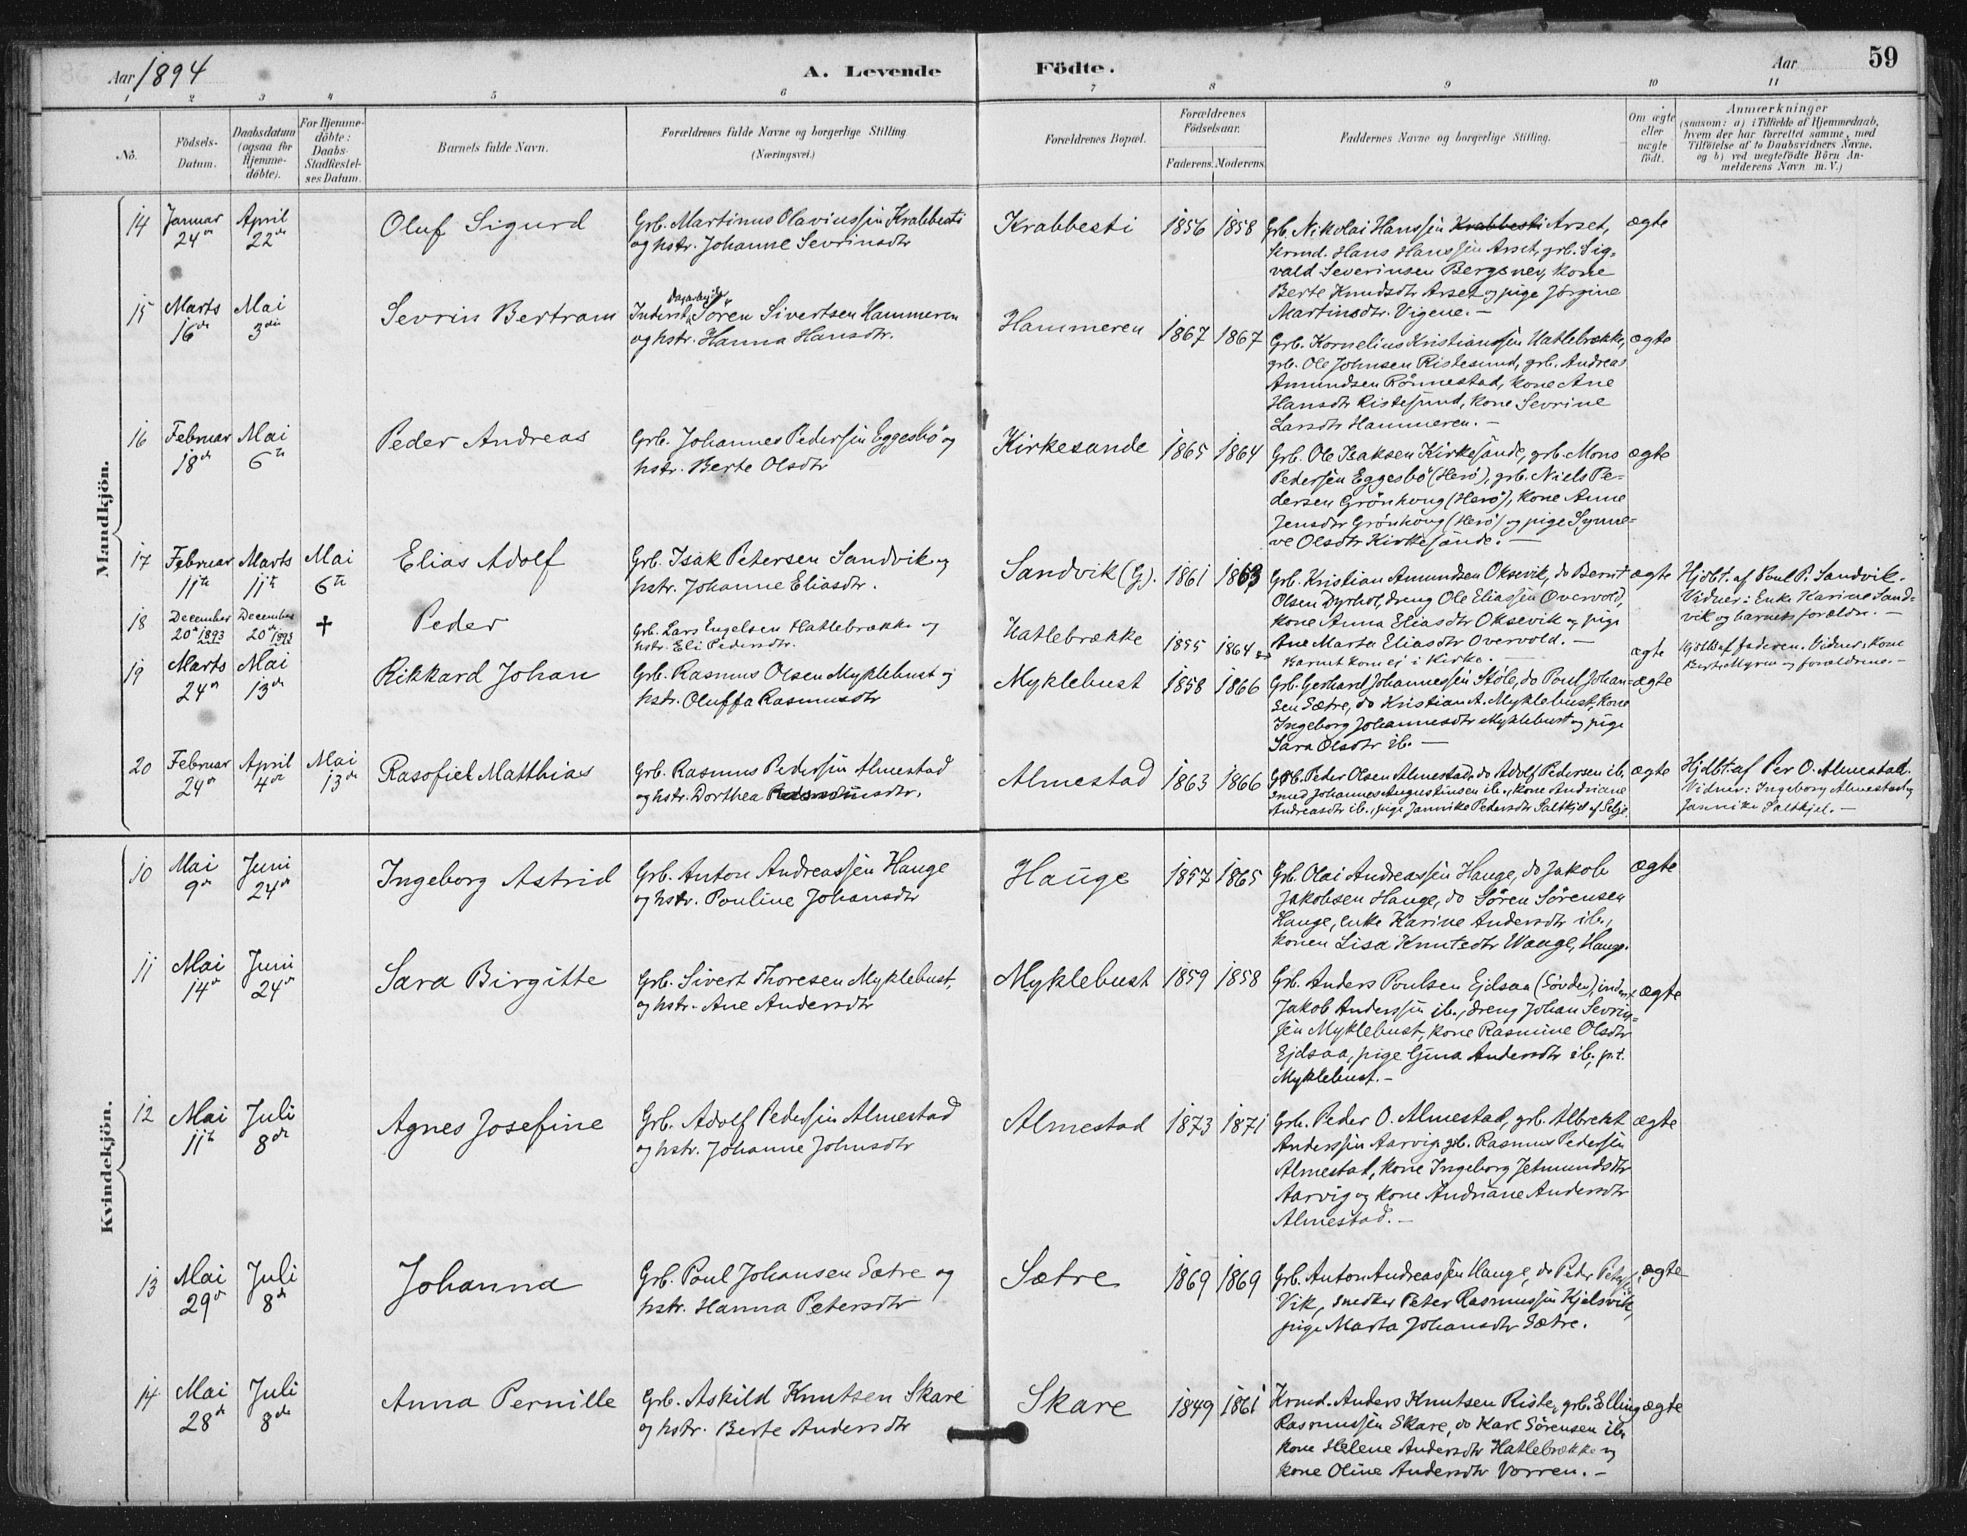 Aar 1894 A. Levende Födte. Aar 59
1 2 3 4 5 6 7 8 9 10 11
No. Födsels-Datum. Daabsdatum (ogsaa for Hjemme-döbte). For Hjemme-döbte: Daabs-Stadfæstel-ses Datum. Barnets fulde Navn. Forældrenes fulde Navne og borgerlige Stilling (Næringsvei.) Forældrenes Bopæl. Forældrenes Födselsaar. Faderens. Moderens. Faddernes Navne og borgerlige Stilling. Om ægte eller uægte födt. Anmærkninger (saasom: a) i Tilfælde af Hjemmedaab, hvem der har forrettet samme, med Tilföielse af to Daabsvidners Navne, og b) ved uægtefödte Börn An-melderens Navn m. V.)
Mandkjön.
14 Januar April Oluf Sigurd Grb. Martinus Olaviussen Krabbesti Krabbesti 1856 1858 Grb. Nikolai Hanssen Krabbesti Arset, ægte
24de 22de og hstr. Johanne Sevrinsdtr
Krmd. Hans Hanssen Arset, grb. Sig=
vald Severinsen Bergsnev, kone
Berte Knudsdtr Arset og pige Jørgine
Martinsdtr. Vigene. —
15 Marts Mai Sevrin Bertram Inderst, Søren Sivertsen Hammeren Hammeren 1867 1867
16de 3die og hstr. Hanna Hansdtr.
Grb. Kornelius Kristianssen Hatlebrække, ægte
grb. Ole Johnsen Ristesund, grb. Andreas
Amundsen Rönnestad, kone Ane
Hansdtr Ristesund, kone Sevrine
Larsdtr Hammeren. —
16 Februar Mai Peder Andreas Grb. Johannes Pederssen Eggesbö og Kirkesande 1865 1864 Grb. Ole Isaksen Kirkesande, grb. Mons ægte
18de 6te hstr. Berte Olsdtr
Pederssen Eggesbö (Herö), grb. Niels Pe-
dersen Grönhoug (Herö), kone Anne
Jensdtr Grönhoug (Herö) og pige Synne=
ve Olsdtr Kirkesande. —
17 Februar Marts Mai Elias Adolf Grb. Isak Petersen Sandvik og Sandvik (G). 1861 1863 Grb. Kristian Amundsen Oksevik, do Bernt ægte Hjdbt. af Poul P. Sandvik.
11te 11te 6te hstr. Johanne Eliasdtr.
Olsen Dyrhol, dreng Ole Eliassen Overvold, Vidner: Enke Karine Sand=
kone Anna Eliasdtr Oksevik og pige vik og barnets forældre. —
Ane Marta Eliasdtr Overvold. —
18 December December † Peder Grb. Lars Engelsen Hatlebrække og Hatlebrække 1855 1864
20de 1893 20de 1893 hstr. Eli Pedersdtr.
Barnet kom ej i Kirke. — ægte Hjdbt af faderen. Vidner: Kone
Berte Myren og forældrene. —
19 Marts Mai Rikkard Johan Grb. Rasmus Olsen Myklebust og Myklebust 1858 1866 Grb. Gerhard Johannessen Støle, do Poul Johan- ægte
24de 13de hstr. Oluffa Rasmusdtr
sen Sætre, do Kristian A. Myklebust, kone
Ingeborg Johannesdtr Myklebust og pige
Sara Olsdtr ib. —
20 Februar April Mai Rasofiel Matthias Grb. Rasmus Pederssen Almestad Almestad 1863 1866 Grb. Peder Olsen Almestad, do Adolf Pedersen ib, ægte Hjdbt. af Per O. Almestad.
24de 4de 13de og hstr. Dorthea
smed Johannes Augustinsen ib., kone Andriane Vidner: Ingeborg Almestad og
Andreasdtr ib., pige Jannike Petersdtr Saltkjel af Selje. Jannike Saltkjel. —
Kvindekjön.
10 Mai Juni Ingeborg Astrid Grb. Anton Andreassen Hauge Hauge 1857 1865 Grb. Olai Andreassen Hauge, do Jakob ægte
9de 24de og hstr. Pouline Johansdtr
Jakobsen Hauge, do Søren Sörensen
Hauge, enke Karine Andersdtr ib.,
konen Lisa Knutsdtr Waage, Hauge.
11 Mai Juni Sara Birgitte Grb. Sivert Thoresen Myklebust, Myklebust 1859 1858 Grb. Anders Poulsen Ejdsaa (Søvden), inderst ægte
14de 24de og hstr. Ane Andersdtr
Jakob Anderssen ib., dreng Johan Sevrin=
sen Myklebust, kone Rasmine Olsdtr
Ejdsaa, pige Gina Andersdtr ib., p.t.
Myklebust. —
12 Mai Juli Agnes Josefine Grb. Adolf Pederssen Almestad Almestad 1873 1871 Grb. Peder O. Almestad, grb. Albrekt ægte
11te 8de og hstr. Johanne Johnsdtr
Anderssen Aarvig, grb. Rasmus Pederssen
Almestad, kone Ingeborg Jetmundsdtr
Aarvig og kone Andriane Andersdtr
Almestad. —
13 Mai Juli Johanna Grb. Poul Johansen Sætre og Sætre 1869 1869 Grb. Anton Andreassen Hauge, do Peder ægte
29de 8de hstr. Hanna Petersdtr
Vik, snedker Peter Rasmussen Kjelsvik,
pige Marta Johansdtr Sætre.
14 Mai Juli Anna Pernille Grb. Askild Knutsen Skare Skare 1849 1861 Krmd. Anders Knutsen Riste, grb. Elling ægte
28de 8de og hstr. Berte Andersdtr
Rasmussen Skare, do Karl Sörensen ib.
kone Helene Andersdtr Hatlebrække og
kone Oline Andersdtr Vorren. —